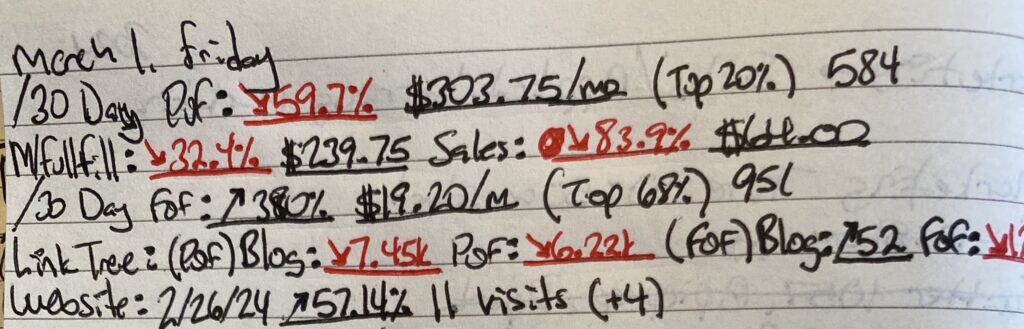 March 1, Friday
/30 Day Pof: ↘59.7% $303.75/mo (Top 20%) 584
M/fullfill: ↘32.4% $239.75 Sales: ↘83.9% $64.00
/30 Day Fof: ↗380% $19.20/m (Top 68%) 951
LinkTree: (Pof)Blog: ↘7.45k Pof: ↘6.22k (Fof)Blog: ↗52 Fof:
Website: 2/26/24 ↗57.14% 11 visits (+4)